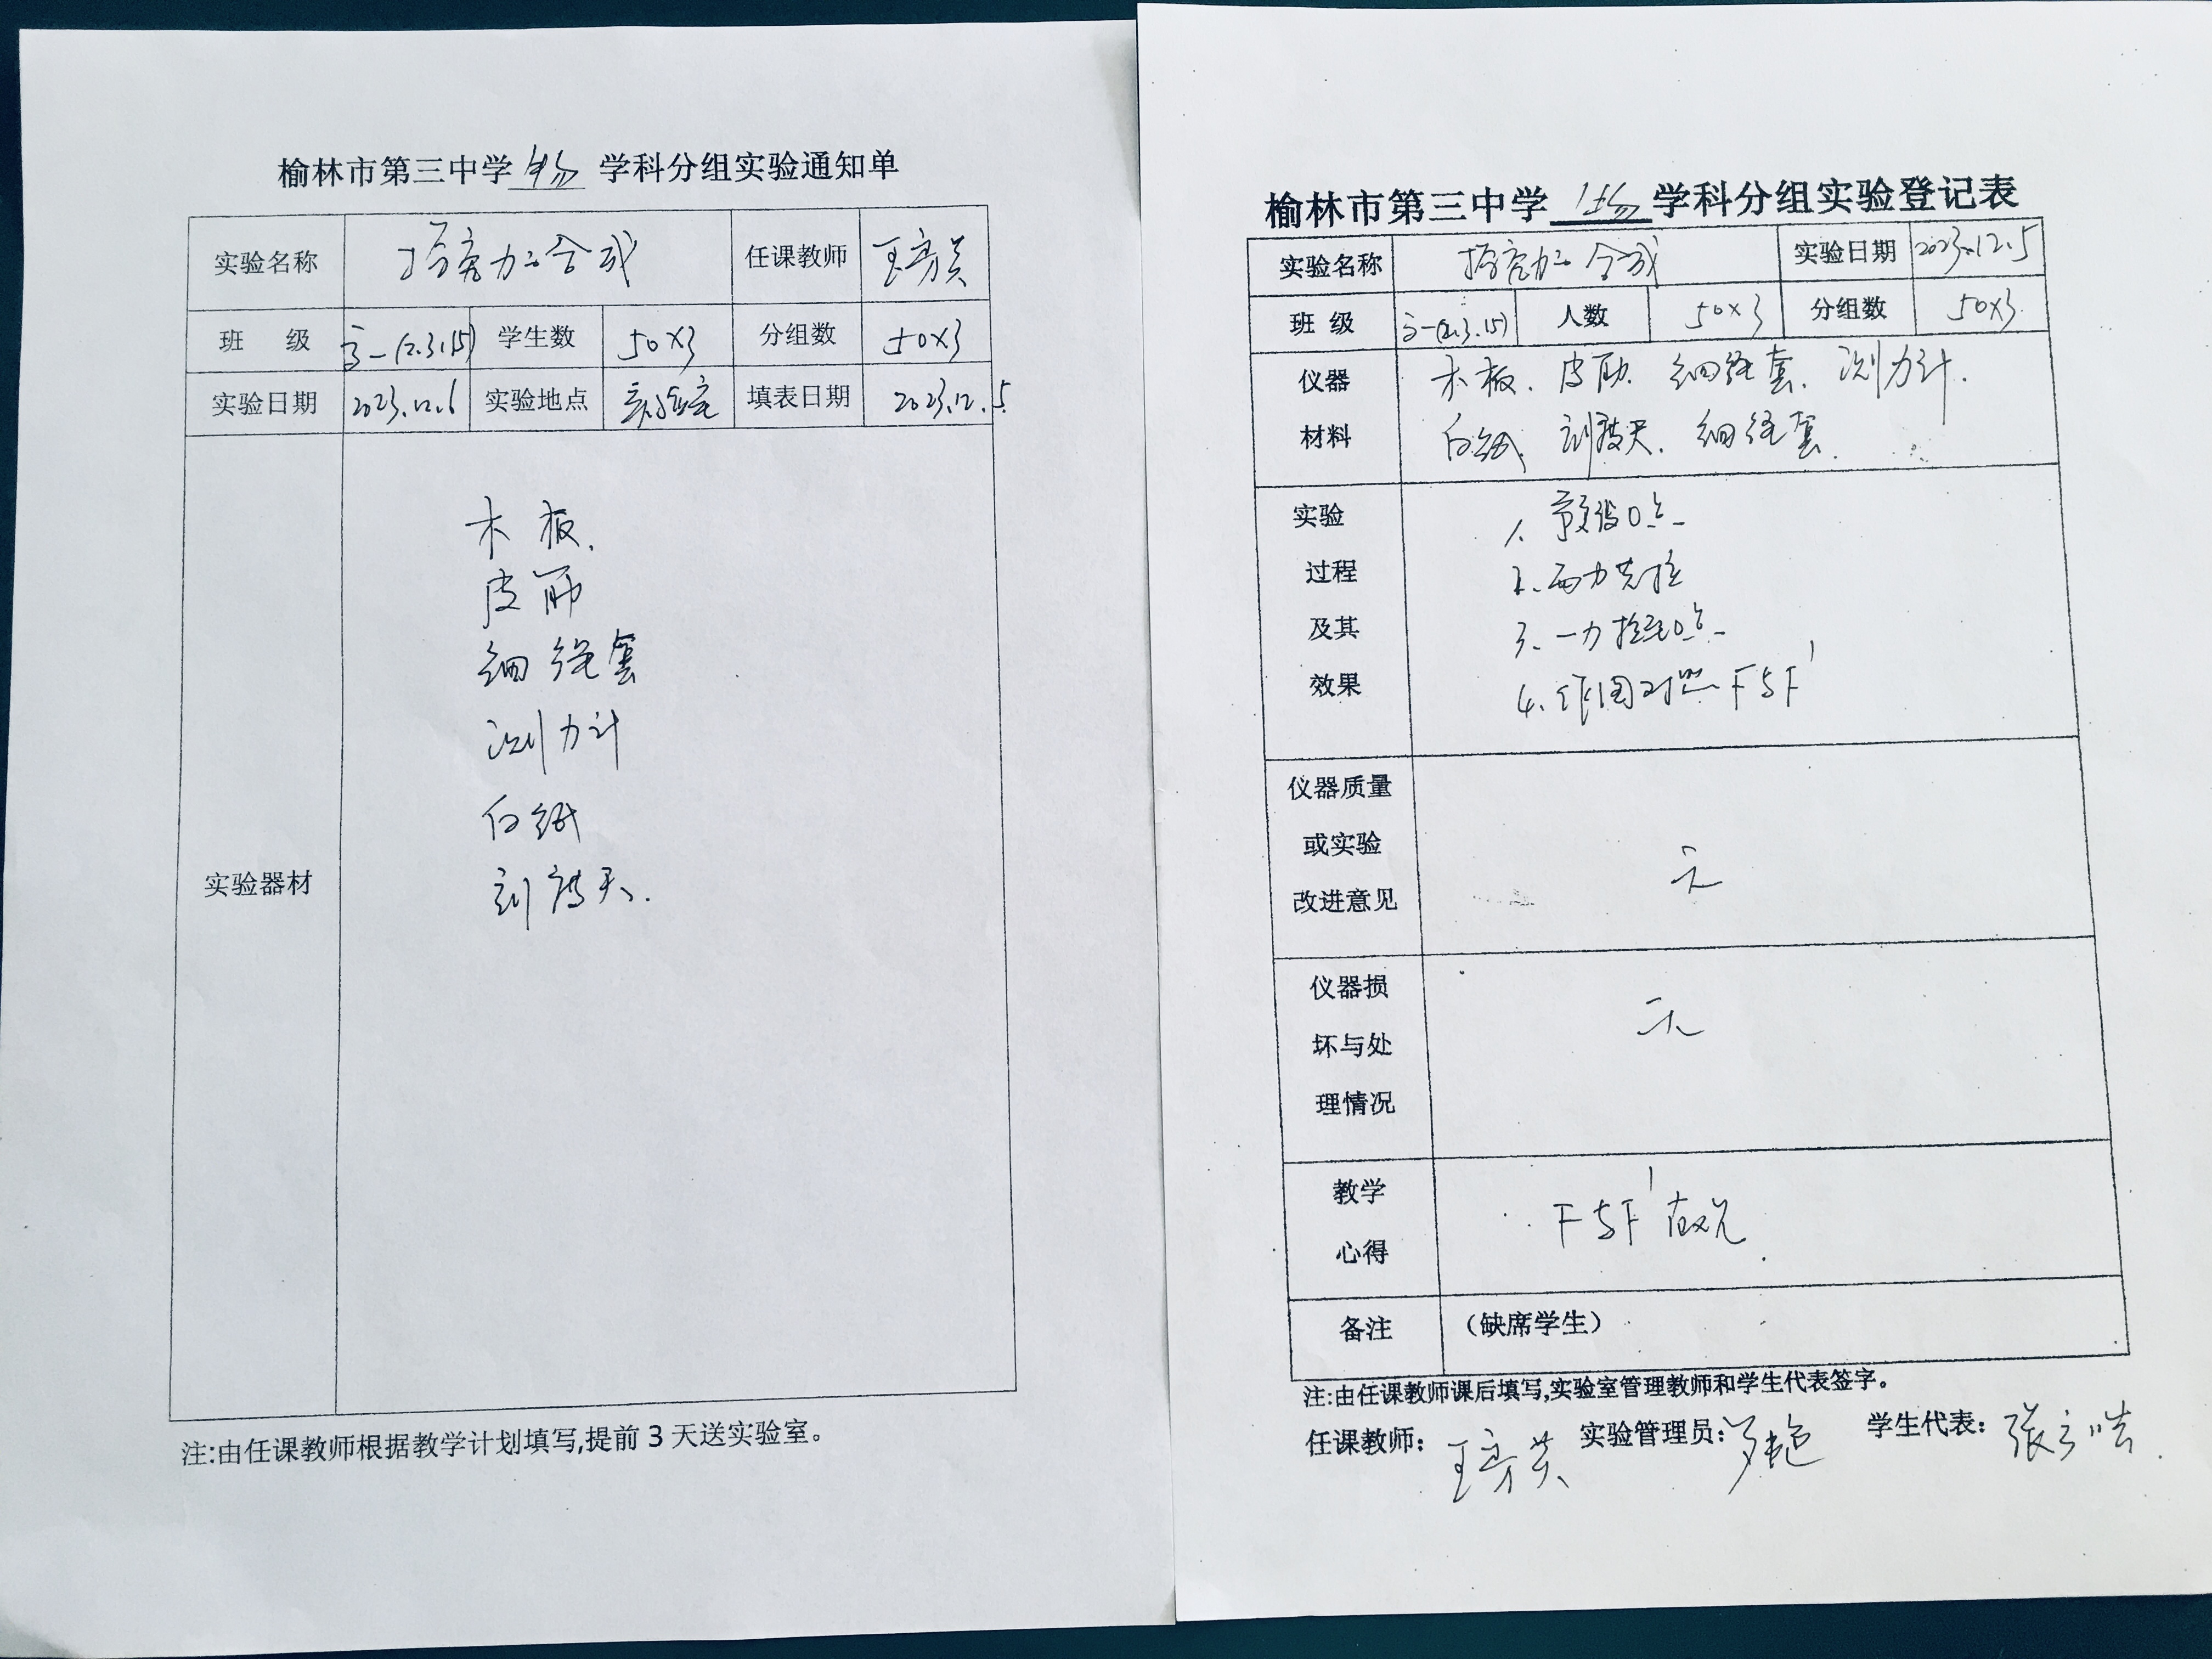 榆林市第三中学 物 学科分组实验通知单
实验名称 探究力的合成 任课教师 王芳芸
班 级 高一(2.3.15) 学生数 50×3 分组数 50×3
实验日期 2023.12.6 实验地点 实验室 填表日期 2023.12.5
实验器材
木板.
皮筋
细绳套
测力计
白纸
刻度尺.
注:由任课教师根据教学计划填写,提前 3 天送实验室。
榆林市第三中学 物 学科分组实验登记表
实验名称 探究力的合成 实验日期 2023.12.5
班 级 高一(2.3.15) 人数 50×3 分组数 50×3
仪器 木板. 皮筋. 细绳套. 测力计.
材料 白纸. 刻度尺. 细绳套.
实验 1. 预设O点
过程 2. 两力共拉
及其 3. 一力拉至O点
效果 4. 作图对照F与F'
仪器质量
或实验 无
改进意见
仪器损 无
坏与处
理情况
教学 F与F'
心得
备注 (缺席学生)
注:由任课教师课后填写,实验室管理教师和学生代表签字。
任课教师: 王芳芸 实验管理员: 学生代表: 张